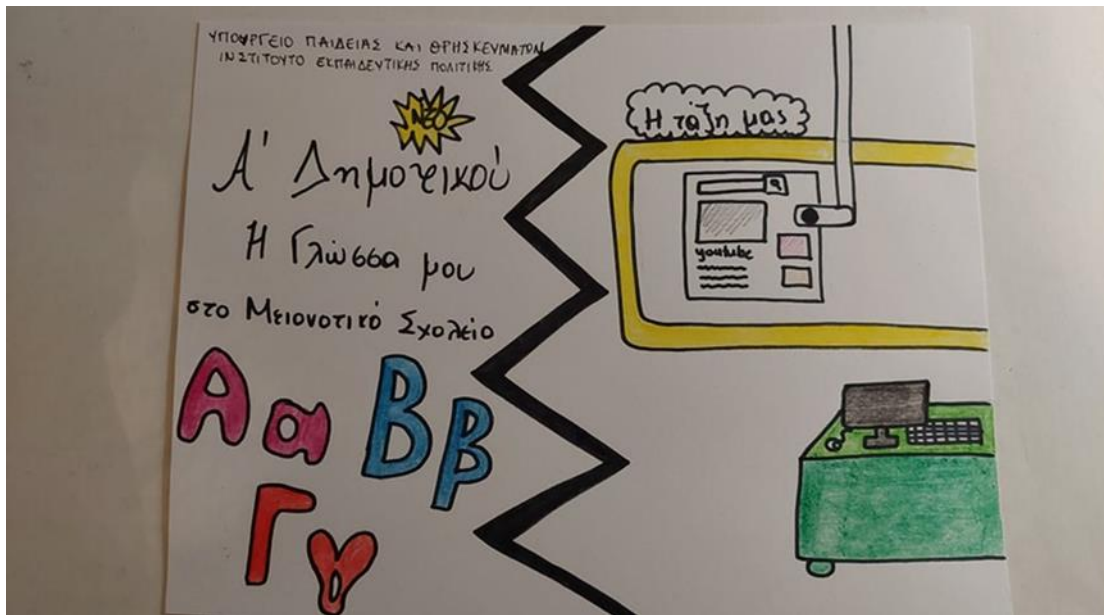 ΥΠΟΥΡΓΕΙΟ ΠΑΙΔΕΙΑΣ ΚΑΙ ΘΡΗΣΚΕΥΜΑΤΩΝ
ΙΝΣΤΙΤΟΥΤΟ ΕΚΠΑΙΔΕΥΤΙΚΗΣ ΠΟΛΙΤΙΚΗΣ
ΝΕΟ
Α' Δημοτικού
Η Γλώσσα μου
στο Μειονοτικό Σχολείο
Α α Β β
Γ γ
Η τάξη μας
youtube